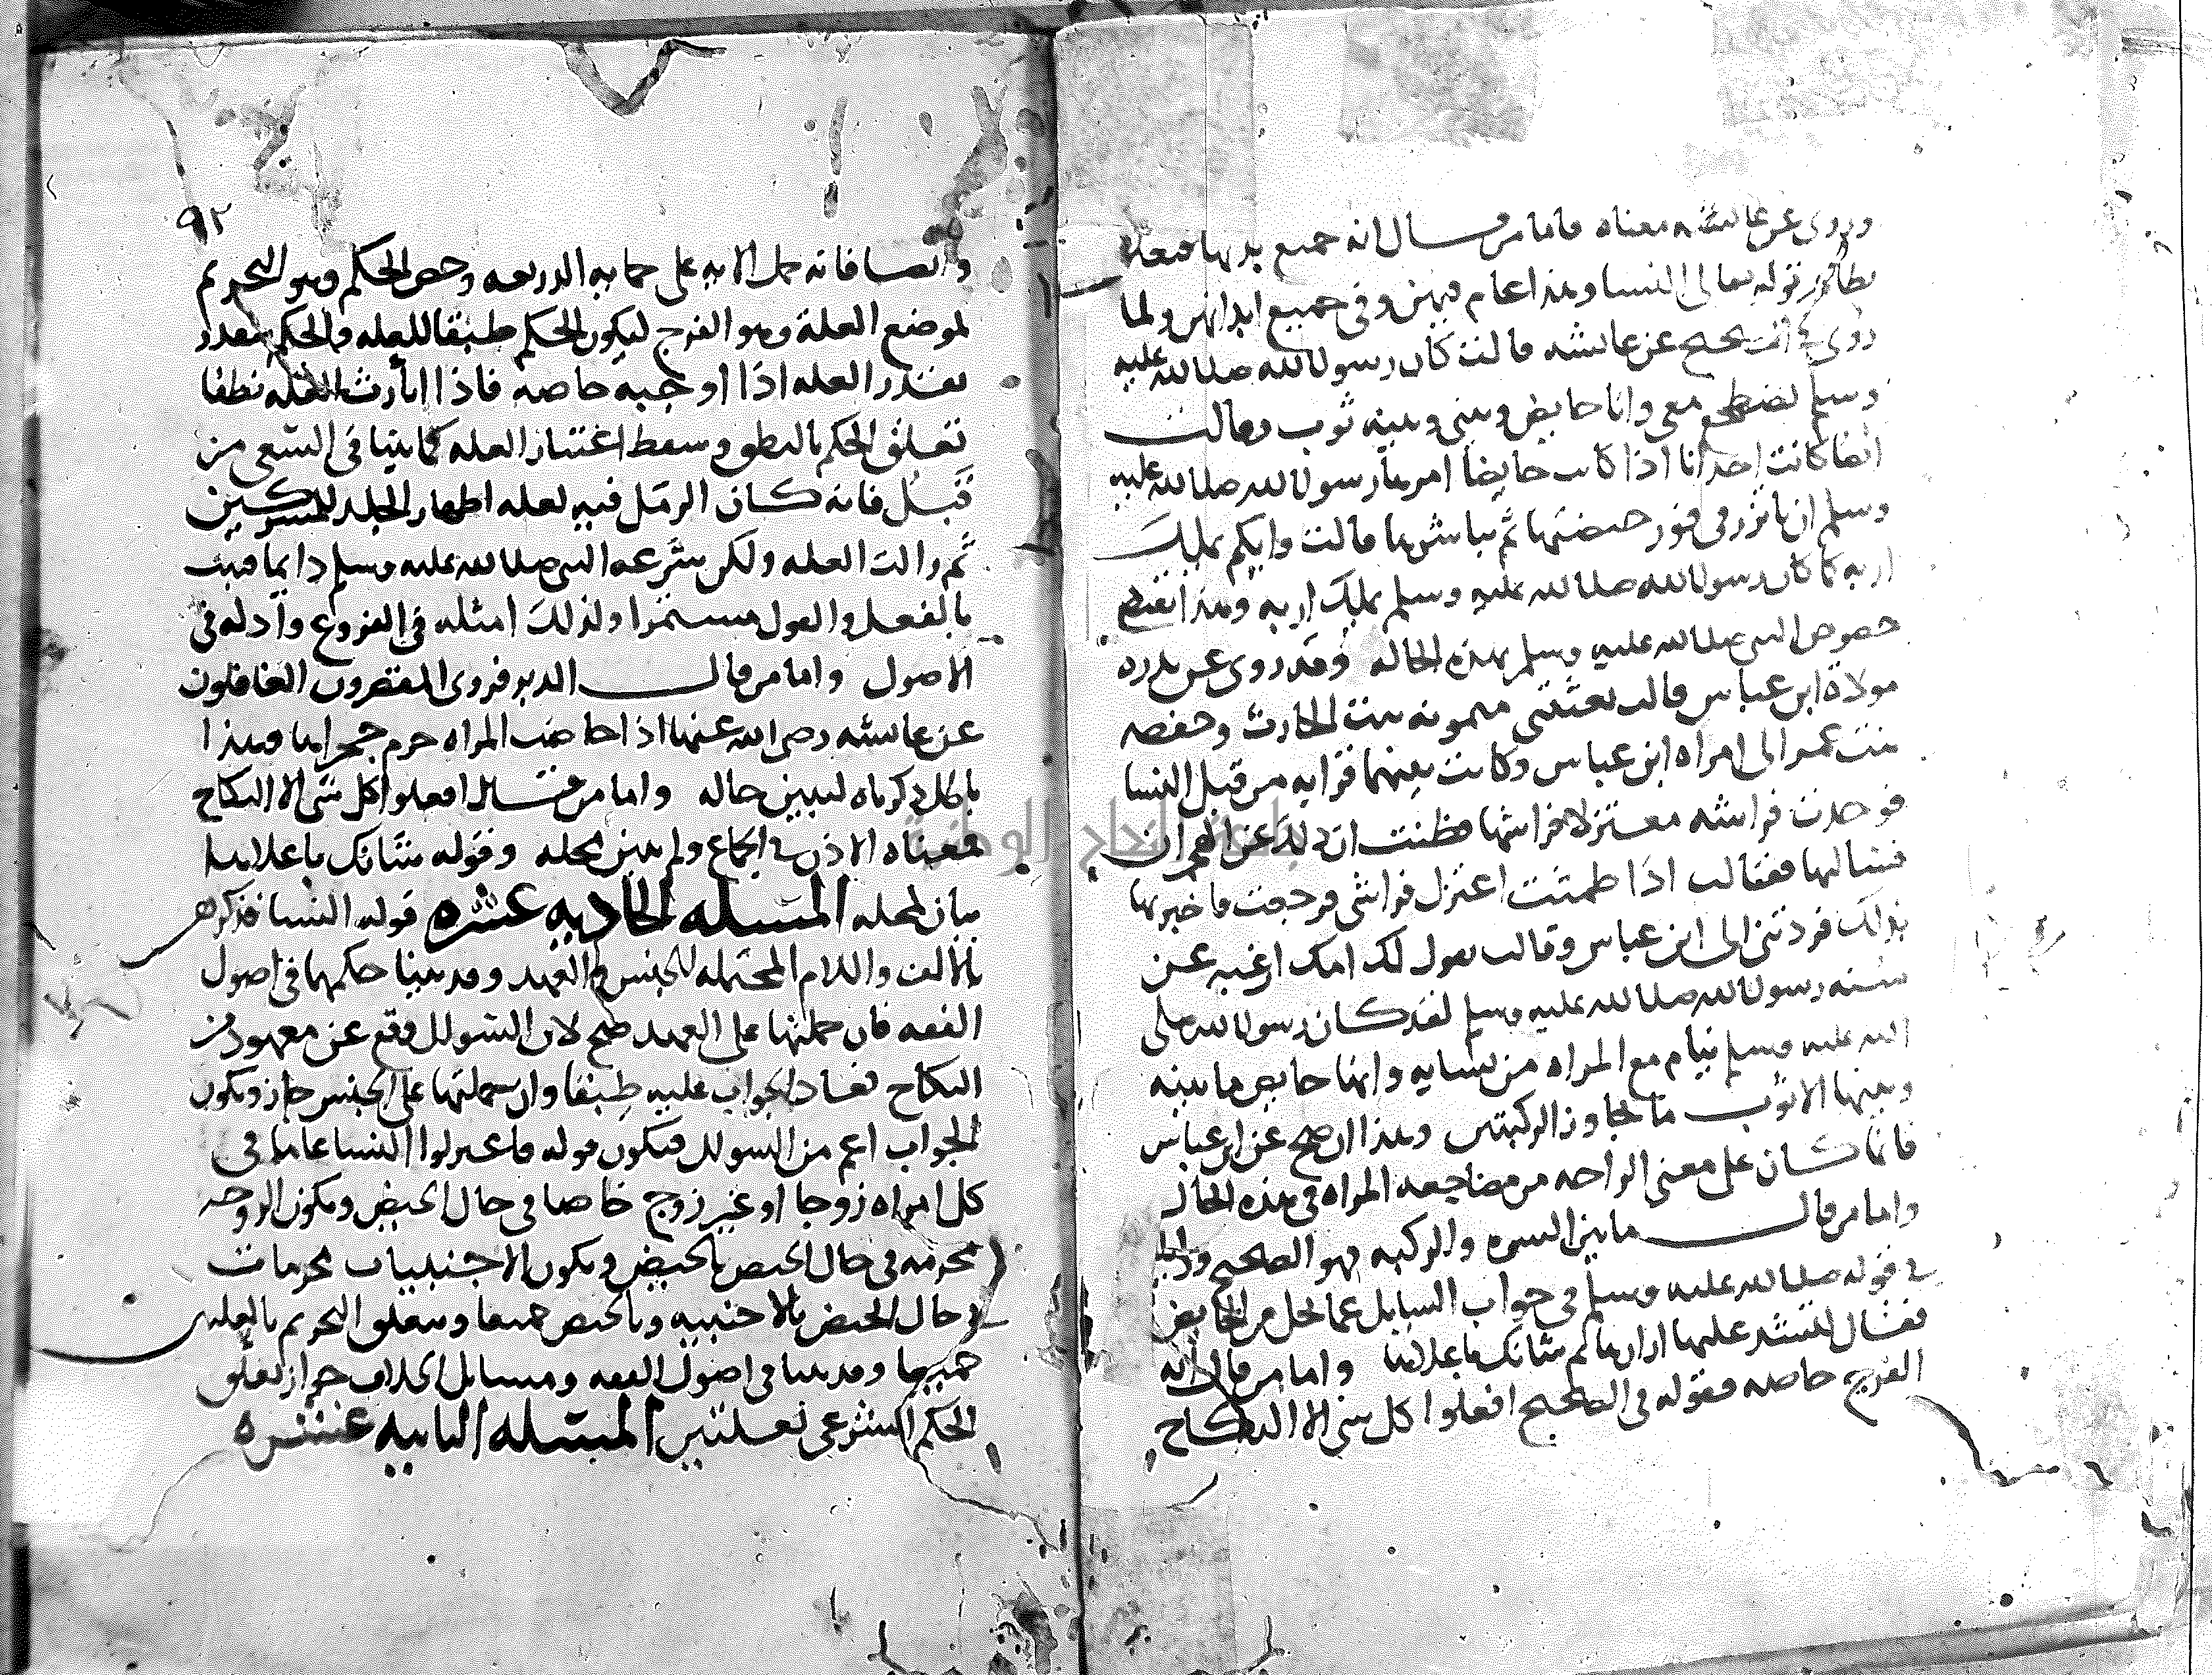 وروى عن عائشه معناه فاما من قال انه جميع بدنها فتعلق
بظاهر قوله تعالى النسا وهذا عام فيهن وفي جميع ابدانهن ولما
روي في الصحيح عن عائشه قالت كان رسول الله صلى الله عليه
وسلم يضطجع معي وانا حايض وبيني وبينه ثوب وقالت
ايضا كانت احدانا اذا كانت حايضا امرها رسول الله صلى الله عليه
وسلم ان تاتزر في فور حيضتها ثم يباشرها قالت وايكم يملك
اربه كما كان رسول الله صلى الله عليه وسلم يملك اربه وهذا يقتضي
خصوص النبي صلى الله عليه وسلم بهذه الحالة وقد روي عن بدره
مولاة ابن عباس قالت بعثتني ميمونه بنت الحارث وحفصه
بنت عمر الى امراه ابن عباس وكانت بينهما قرابه من قبل النسا
فوجدت فراشه معتزلا فراشها فظننت ان ذلك عن الهجران
فسالتها فقالت اذا طمثت اعتزل فراشي فرجعت فاخبرتها
بذلك فردتني الى ابن عباس وقالت تقول لك امك ارغبه عن
سنه رسول الله صلى الله عليه وسلم لقد كان رسول الله صلى
الله عليه وسلم ينام مع المراه من نسايه وانها حايض ما بينه
وبينها الا ثوب ما يجاوز الركبتين وهذا ان صح عن ابن عباس
فانما كان على معنى الراحه من مضاجعه المراه في هذه الحال
واما من قال ما بين السره والركبه فهو الصحيح ودليله
في قوله صلى الله عليه وسلم في جواب السايل عما يحل من الحايض
فقال لتشد عليها ازارها ثم شانك باعلاها واما من قال انه
الفرج خاصه فقوله في الصحيح افعلوا كل شي الا النكاح
٩٢
وايضا فانه حمل الايه على حمايه الذريعه وخص الحكم وهو التحريم
لموضع العلة وهو الفرج ليكون الحكم طبقا للعله والحكم يتقدر
بقدر العله اذا اوجبه خاصه فاذا اثارت العله نطقا
تعلق الحكم بالنطق وسقط اعتبار العله كما بينا في السعي من
قبل فانه كان الرمل فيه لعله اظهار الجلد للمشركين
ثم زالت العله ولكن شرعه النبي صلى الله عليه وسلم دايما فثبت
بالفعل والقول مستمرا ولذلك امثله في الفروع وادله في
الاصول واما من قال الدبر فروى المقصرون الغافلون
عن عائشه رضي الله عنها اذا حاضت المراه حرم حجراها وهذا
باطل ذكرناه لنبين حاله واما من قال افعلوا كل شي الا النكاح
فمعناه الاذن في الجماع ولم يبين محله وقوله شانك باعلاها
بيان لمحله المسله الحاديه عشره قوله النسا فذكرهن
بالالف واللام المحتمله للجنس والعهد وقد بينا حكمها في اصول
الفقه فان حملتها على العهد صح لان السؤال وقع عن معهود من
النكاح فعاد الجواب عليه طبقا وان حملتها على الجنس جاز ويكون
الجواب اعم من السؤال فيكون قوله فاعتزلوا النسا عاما في
كل امراه زوجا او غير زوج خاصا في حال الحيض ويكون الزوجه
محرمه في حال الحيض بالحيض ويكون الاجنبيات محرمات
في حال الحيض بالاجنبيه وبالحيض جميعا ويتعلق التحريم بالعلتين
جميعا وقد بينا في اصول الفقه ومسايل الخلاف جواز تعلق
الحكم الشرعي بعلتين المسله الثانيه عشره
جامعة النجاح الوطنية